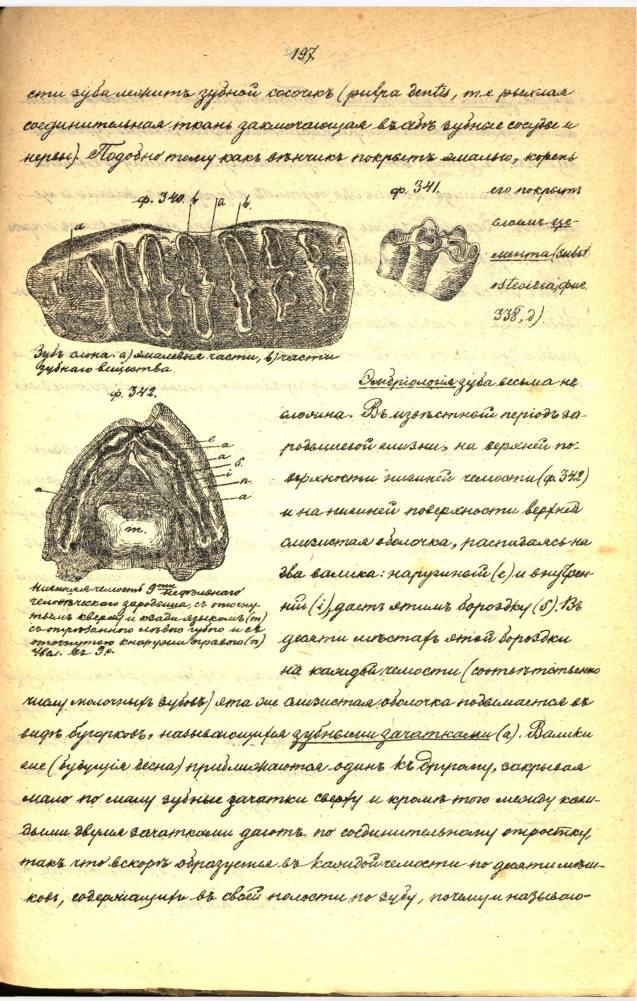 197.
сти зуба лежитъ зубной сосочекъ (pulpa dentis, т.е рыхлая
соединительная ткань заключающая въ себѣ зубные сосуды и
нервы). Подобно тому какъ вѣнчикъ покрытъ эмалью, корень
ф. 340.
в
а
в.
а
ф. 341.
его покрытъ
слоемъ це-
мента (subst
osteoidea, фиг.
338, д).
Зубъ слона: а) эмалевыя части, в) части
зубнаго вещества.
Эмбріологія зуба весьма не
сложна. Въ извѣстный періодъ за-
родышевой жизни, на верхней по-
верхности нижней челюсти (ф. 342)
и на нижней поверхности верхней
слизистая оболочка, распадаясь на
два валика: наружный (е) и внутрен-
ній (i), даетъ этимъ бороздку (б). Въ
десяти мѣстахъ этой бороздки
на каждой челюсти (соотвѣтственно
ф. 342.
е
а
а
б.
i
п.
а
п
т.
Нижняя челюсть 9ти недѣльнаго
человѣческаго зародыша, съ отогну-
тымъ кверху и кзади языкомъ (т)
съ отрѣзанной лѣвою губою и съ
отогнутою кнаружи правою (п)
Увел. въ 9 р.
числу молочныхъ зубовъ) эта же слизистая оболочка подымается въ
видѣ бугорковъ, называющихся зубными зачатками (а). Валики
же (будущія десна) приближаются одинъ къ другому, закрывая
мало по малу зубные зачатки сверху и кромѣ того между каж-
дыми двумя зачатками даютъ по соединительному отростку,
такъ что вскорѣ образуется въ каждой челюсти по десяти мѣш-
ковъ, содержащихъ въ своей полости по зубу, почему и называю-